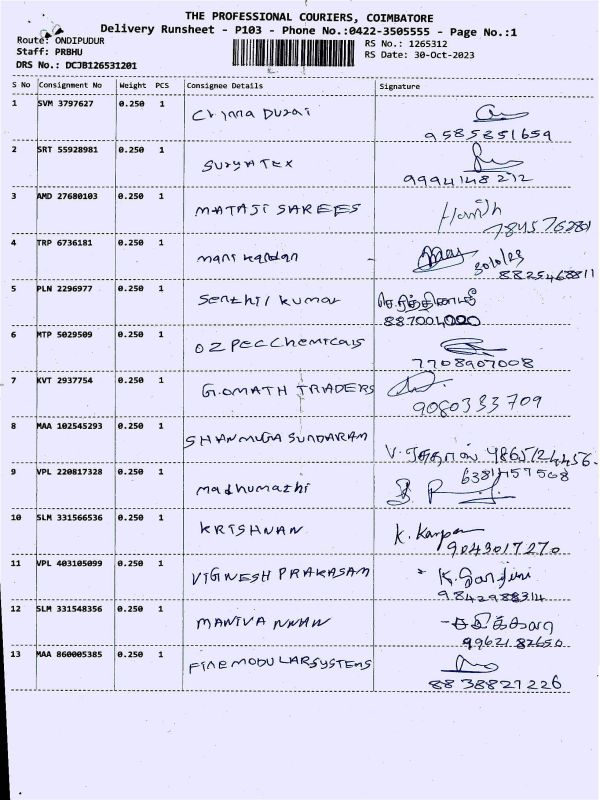 THE PROFESSIONAL COURIERS, COIMBATORE
Delivery Runsheet - P103 - Phone No.:0422-3505555 - Page No.:1
Route: ONDIPUDUR
RS No.: 1265312
Staff: PRBHU
RS Date: 30-Oct-2023
DRS No.: DCJB126531201
S No Consignment No Weight PCS Consignee Details Signature
1 SVM 3797627 0.250 1 Chinna Durai
9585851659
2 SRT 55928981 0.250 1 SURYA TEX
9994148212
3 AMD 27680103 0.250 1 MATAJI SAREES Harish
4 TRP 6736181 0.250 1 mani kandan
30/10/23
8825468811
5 PLN 2296977 0.250 1 Senthil kumar
6 MTP 5029509 0.250 1 OZPEC Chemicals
7708907008
7 KVT 2937754 0.250 1 G.OMATH TRADERS
9080333709
8 MAA 102545293 0.250 1 SHANMUGA SUNDARAM
V. 9865124456.
9 VPL 220817328 0.250 1 madhumathi
6381157508
10 SLM 331566536 0.250 1 KRISHNAN K.
9043017270
11 VPL 403105099 0.250 1 VIGNESH PRAKASAM
9842988314
12 SLM 331548356 0.250 1 MANIVANNAN
9962182650
13 MAA 860005385 0.250 1 FINE MODULAR SYSTEMS
8838827226